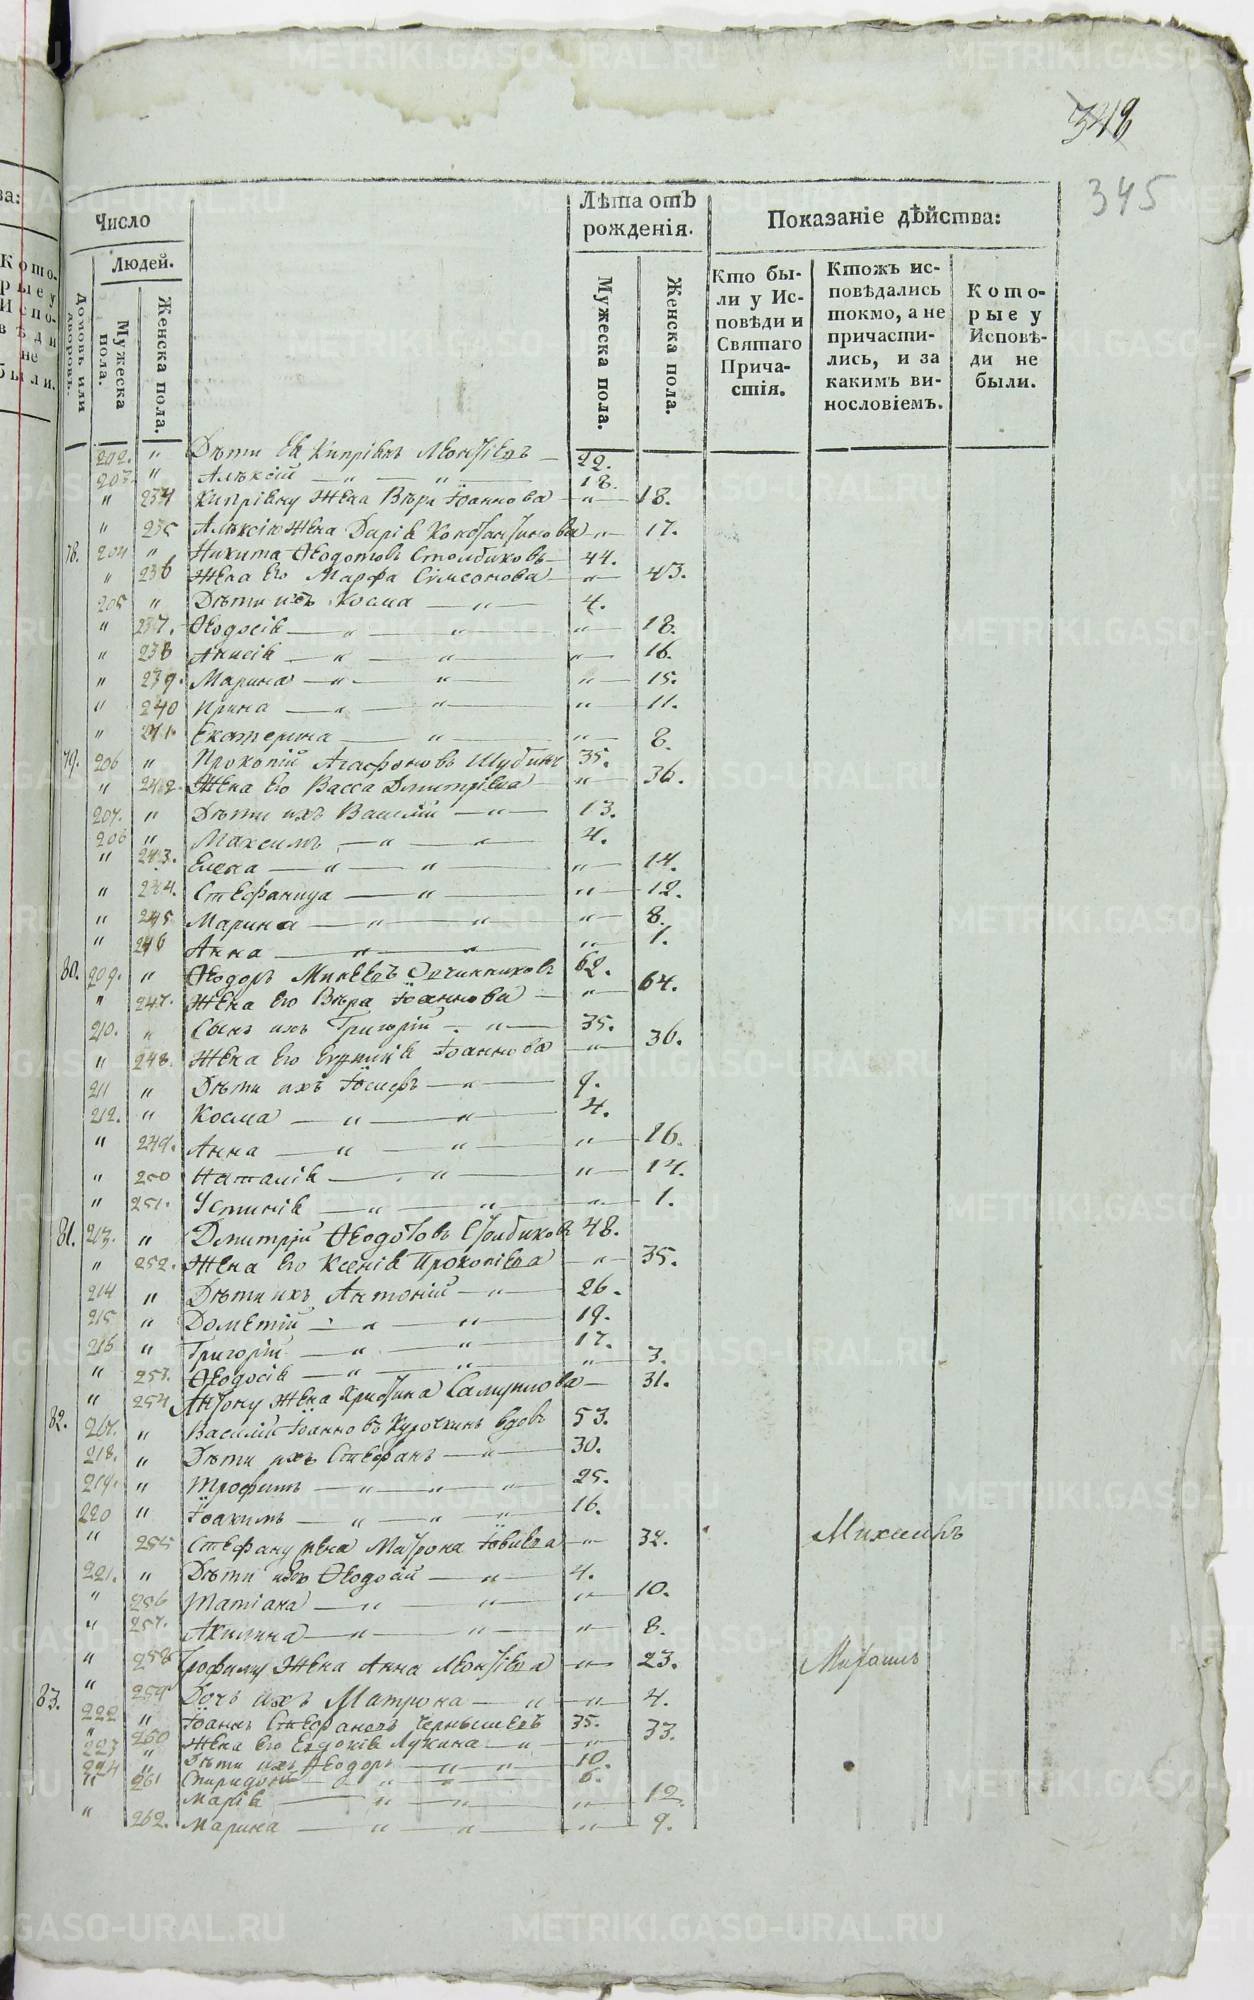 348
345
Число
Людей.
Домовъ или дворовъ.
Мужеска пола.
Женска пола.
Лѣта отъ рожденія.
Мужеска пола.
Женска пола.
Показаніе дѣйства:
Кто бы-
ли у Ис-
повѣди и
Святаго
Прича-
стія.
Ктожъ ис-
повѣдались
токмо, а не
причасти-
лись, и за
какимъ ви-
нословіемъ.
Кото-
рые у
Исповѣ-
ди не
были.
202. " Дѣти ея Кипріянъ Леонтіевъ — 22.
203. " Алексій — " — " — 18.
" 234 Кипріяну жена Вѣра Іоаннова — " — 18.
" 235 Алексію жена Дарія Константинова — " — 17.
78. 204 " Никита Ѳеодотовъ Столбиковъ — 44.
" 236 Жена его Марфа Сумеонова — " — 43.
205 " Дѣти ихъ Косма — " — 4.
" 237. Ѳеодосія — " — " — " — 18.
" 238 Анисія — " — " — " — 16.
" 239. Марина — " — " — " — 15.
" 240 Ирина — " — " — " — 11.
" 241. Екатерина — " — " — 8.
79. 206 " Прокопій Агафоновъ Шубинъ 35.
" 242. Жена его Васса Димитріева — " — 36.
207. " Дѣти ихъ Василій — " — 13.
208 " Максимъ — " — " — 4.
" 243. Елена — " — " — " — 14.
" 244. Стефанида — " — " — 12.
" 245 Марина — " — " — " — 8.
" 246 Анна — " — " — " — 1.
80. 209. " Ѳеодоръ Минеевъ Овчинниковъ 62.
" 247. Жена его Вѣра Іоаннова — " — 64.
210. " Сынъ ихъ Григорій — " — 35.
" 248. Жена его Іоаннова — " — 36.
211 " Дѣти ихъ Іосифъ — " — 9.
212. " Косма — " — " — 4.
" 249. Анна — " — " — " — 16.
" 250 Наталія — " — " — 14.
" 251. Устинія — " — " — " — 1.
81. 213. " Димитрій Ѳеодотовъ Столбиковъ 48.
" 252. Жена его Ксенія Прокопіева — " — 35.
214 " Дѣти ихъ Антоній — " — 26.
215 " Дометій — " — " — 19.
216 " Григорій — " — " — 17.
" 253. Ѳеодосія — " — " — " — 3.
" 254 Антону жена Христина Самуилова — 31.
82. 217. " Василій Іоанновъ Курочкинъ вдовъ 53.
218. " Дѣти ихъ Стефанъ — " — 30.
219. " Трофимъ — " — " — " — 25.
220 " Іоакимъ — " — " — " — 16.
" 255 Стефану жена Матрона Іовлева — " — 32. Михаилъ
221. " Дѣти ихъ Ѳеодосій — " — 4.
" 256 Татіана — " — " — " — 10.
" 257. Акилина — " — " — " — 8.
" 258 Трофиму жена Анна Леонтіева — " — 23.
" 259 Дочь ихъ Матрона — " — " — 4.
83. 222 " Іоаннъ Стефановъ Чернышевъ 35.
" 260 Жена его Евдокія Лукина — " — " — 33.
223 " Дѣти ихъ Ѳеодоръ — " — " — 10.
224 " Спиридонъ — " — " — 6.
" 261 Марія — " — " — " — 12.
" 262. Марина — " — " — " — 9.
METRIKI.GASO-URAL.RU